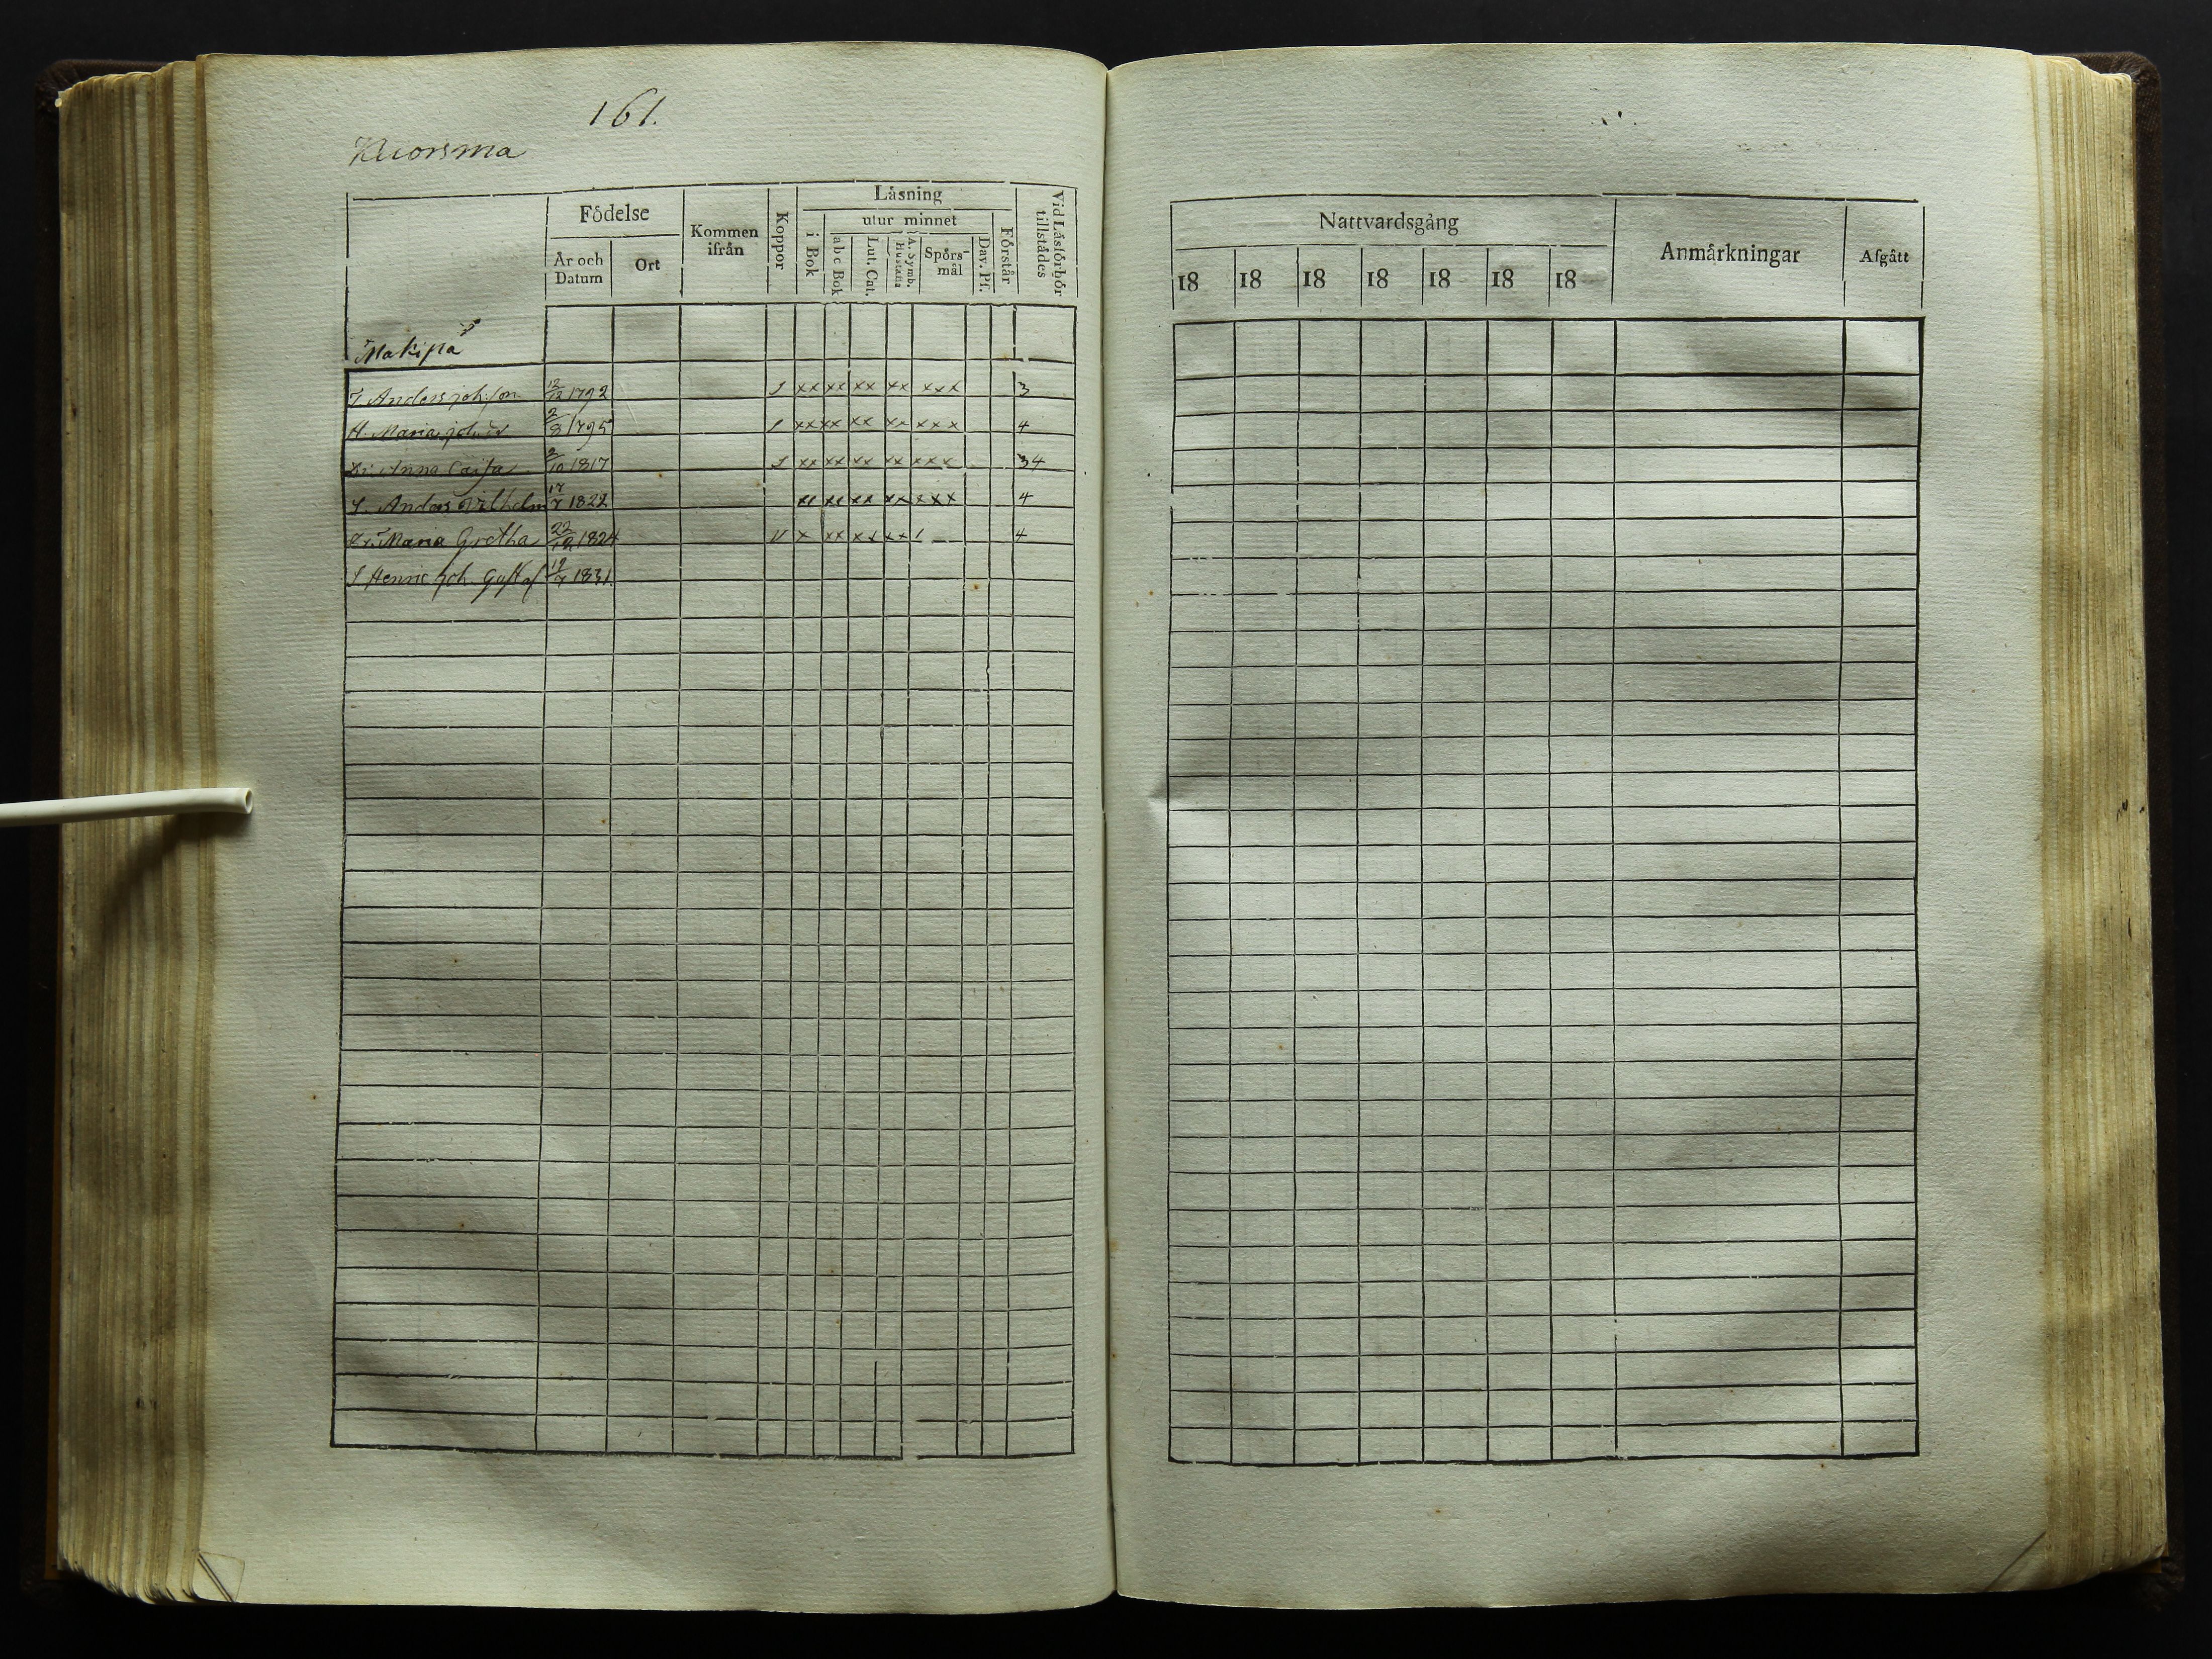 161.
Kuorsma
Födelse
År och Datum
Ort
Kommen ifrån
Koppor
Läsning
i Bok
utur minnet
abc Bok
Lut. Cat.
A. Symb. Hustafla
Spörs-mål
Dav. Ps.
Förstår
Vid Läsförhör tillstädes
Mäkipä
T. Anders joh:son 12/12 1792 S xx xx xx xx xxx 3
H. Maria joh:dr 2/8 1795 S xx xx xx xx xxx 4
Dr. Anna Cajsa 2/10 1817 S xx xx xx xx xxx 34
S. Anders Vilhelm 17/7 1822 xx xx xx xx xxx 4
Dr. Maria Gretha 22/12 1824 V x xx xx xx 1 4
S Henric Joh. Gustaf 12/7 1831
Nattvardsgång
18 18 18 18 18 18 18
Anmärkningar
Afgått